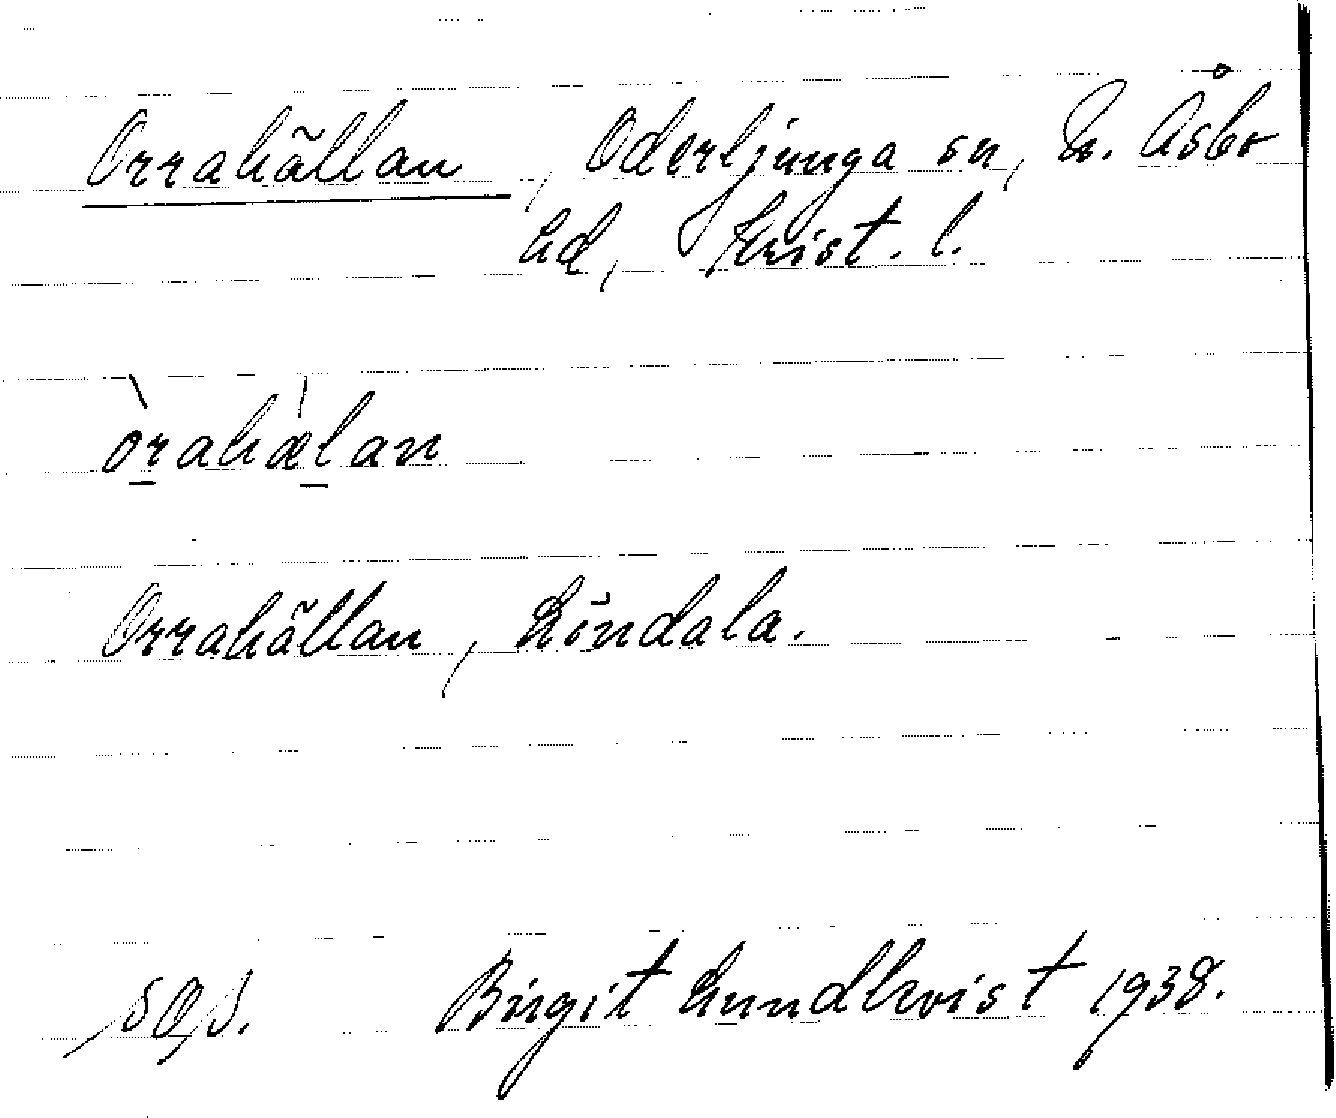 Orrahällan, Oderljunga sn, N. Åsbo
hd, Krist. l.
òrahælan
Orrahällan, Röndala.
Birgit Lundkvist 1938.